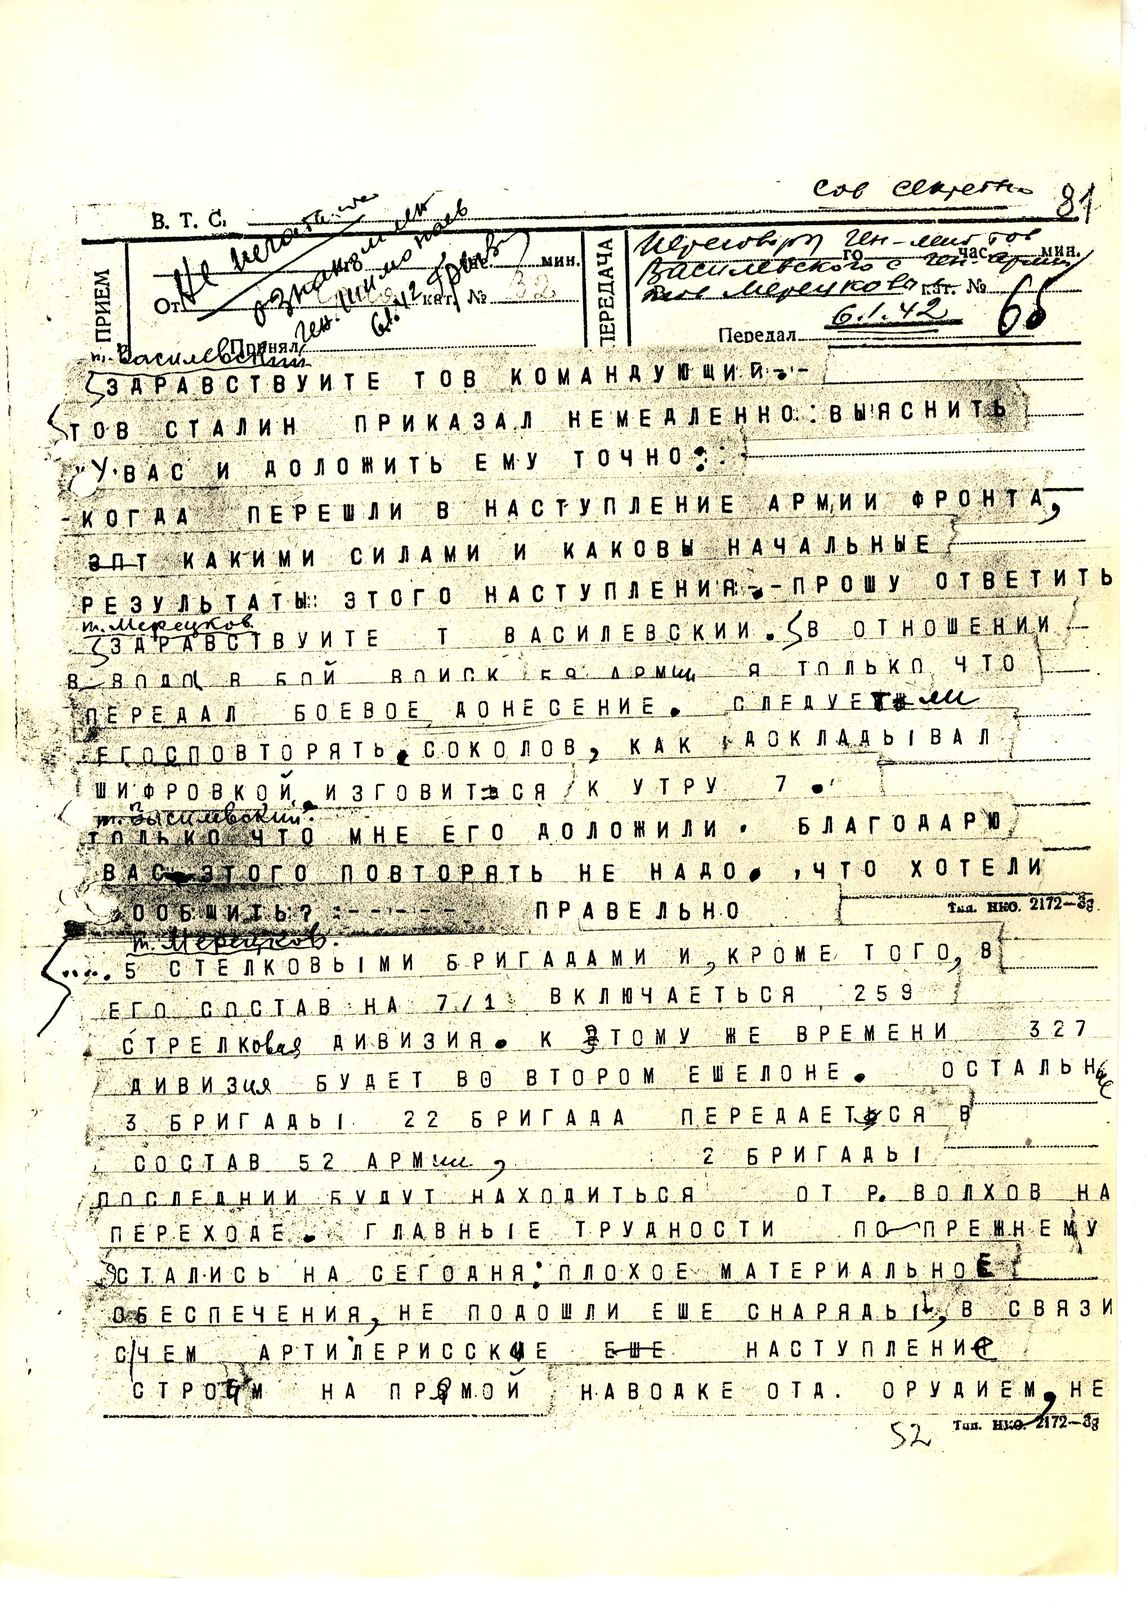 сов секретно
81
В. Т. С.
ПРИЕМ
Не печатать
ознакомлен
ген. Тимонаев
6.1.42
мин.
От
кат. №
32
Принял
ПЕРЕДАЧА
Переговоры Ген-лейт тов
го час. мин.
Василевского с Ген-армии
тов Мерецковым
кат. №
6.1.42
65
Передал
т. Василевский
ЗДРАВСТВУИТЕ ТОВ КОМАНДУЮЩИЙ.--
ТОВ СТАЛИН ПРИКАЗАЛ НЕМЕДЛЕННО:ВЫЯСНИТЬ
У ВАС И ДОЛОЖИТЬ ЕМУ ТОЧНО::
-КОГДА ПЕРЕШЛИ В НАСТУПЛЕНИЕ АРМИИ ФРОНТА,
ЗПТ КАКИМИ СИЛАМИ И КАКОВЫ НАЧАЛЬНЫЕ
РЕЗУЛЬТАТЫ: ЭТОГО НАСТУПЛЕНИЯ.--ПРОШУ ОТВЕТИТЬ
т. Мерецков
ЗДРАВСТВУИТЕ Т ВАСИЛЕВСКИИ. В ОТНОШЕНИИ
ВВОДА В БОЙ ВОИСК 59 АРМИИ Я ТОЛЬКО ЧТО
ПЕРЕДАЛ БОЕВОЕ ДОНЕСЕНИЕ. СЛЕДУЕТ ли
ЕГОСПОВТОРЯТЬ. СОКОЛОВ, КАК ДОКЛАДЫВАЛ
ШИФРОВКОЙ, ИЗГОВИТЬСЯ К УТРУ 7.
т. Василевский.
ТОЛЬКО ЧТО МНЕ ЕГО ДОЛОЖИЛИ. БЛАГОДАРЮ
ВАС ЭТОГО ПОВТОРЯТЬ НЕ НАДО. ,ЧТО ХОТЕЛИ
ООБШИТЬ? :----- ПРАВЕЛЬНО
Тип. НКО. 2172—38
т. Мерецков.
.... 5 СТЕЛКОВЫМИ БРИГАДАМИ И, КРОМЕ ТОГО, В
ЕГО СОСТАВ НА 7/1 ВКЛЮЧАЕТЬСЯ 259
СТРЕЛКовая ДИВИЗИЯ. К ЭТОМУ ЖЕ ВРЕМЕНИ 327
ДИВИЗия БУДЕТ ВО ВТОРОМ ЕШЕЛОНЕ. ОСТАЛЬНые
3 БРИГАДЫ 22 БРИГАДА ПЕРЕДАЕТЬСЯ В
СОСТАВ 52 АРМии, 2 БРИГАДЫ
ПОСЛЕДНИИ БУДУТ НАХОДИТЬСЯ ОТ Р. ВОЛХОВ НА
ПЕРЕХОДЕ. ГЛАВНЫЕ ТРУДНОСТИ ПО-ПРЕЖНЕМУ
ОСТАЛИСЬ НА СЕГОДНЯ: ПЛОХОЕ МАТЕРИАЛЬНОЕ
ОБЕСПЕЧЕНИЯ, НЕ ПОДОШЛИ ЕШЕ СНАРЯДЫ, В СВЯЗИ
С ЧЕМ АРТИЛЕРИССКИЕ ЕШЕ НАСТУПЛЕНИЕ
СТРОЕМ НА ПРЯМОЙ НАВОДКЕ ОТД. ОРУДИЕМ, НЕ
52
Тип. НКО. 2172—38